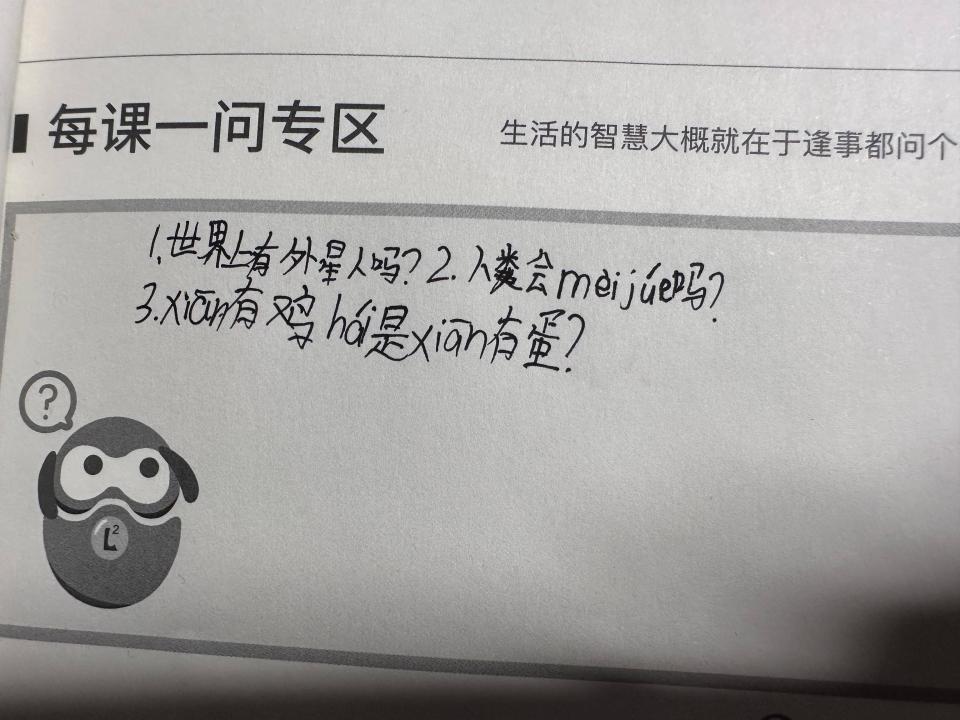 每课一问专区
生活的智慧大概就在于逢事都问个
1.世界上有外星人吗?2.人类会mèijúe吗?
3.xiān有鸡hái是xiān有蛋?
?
L²